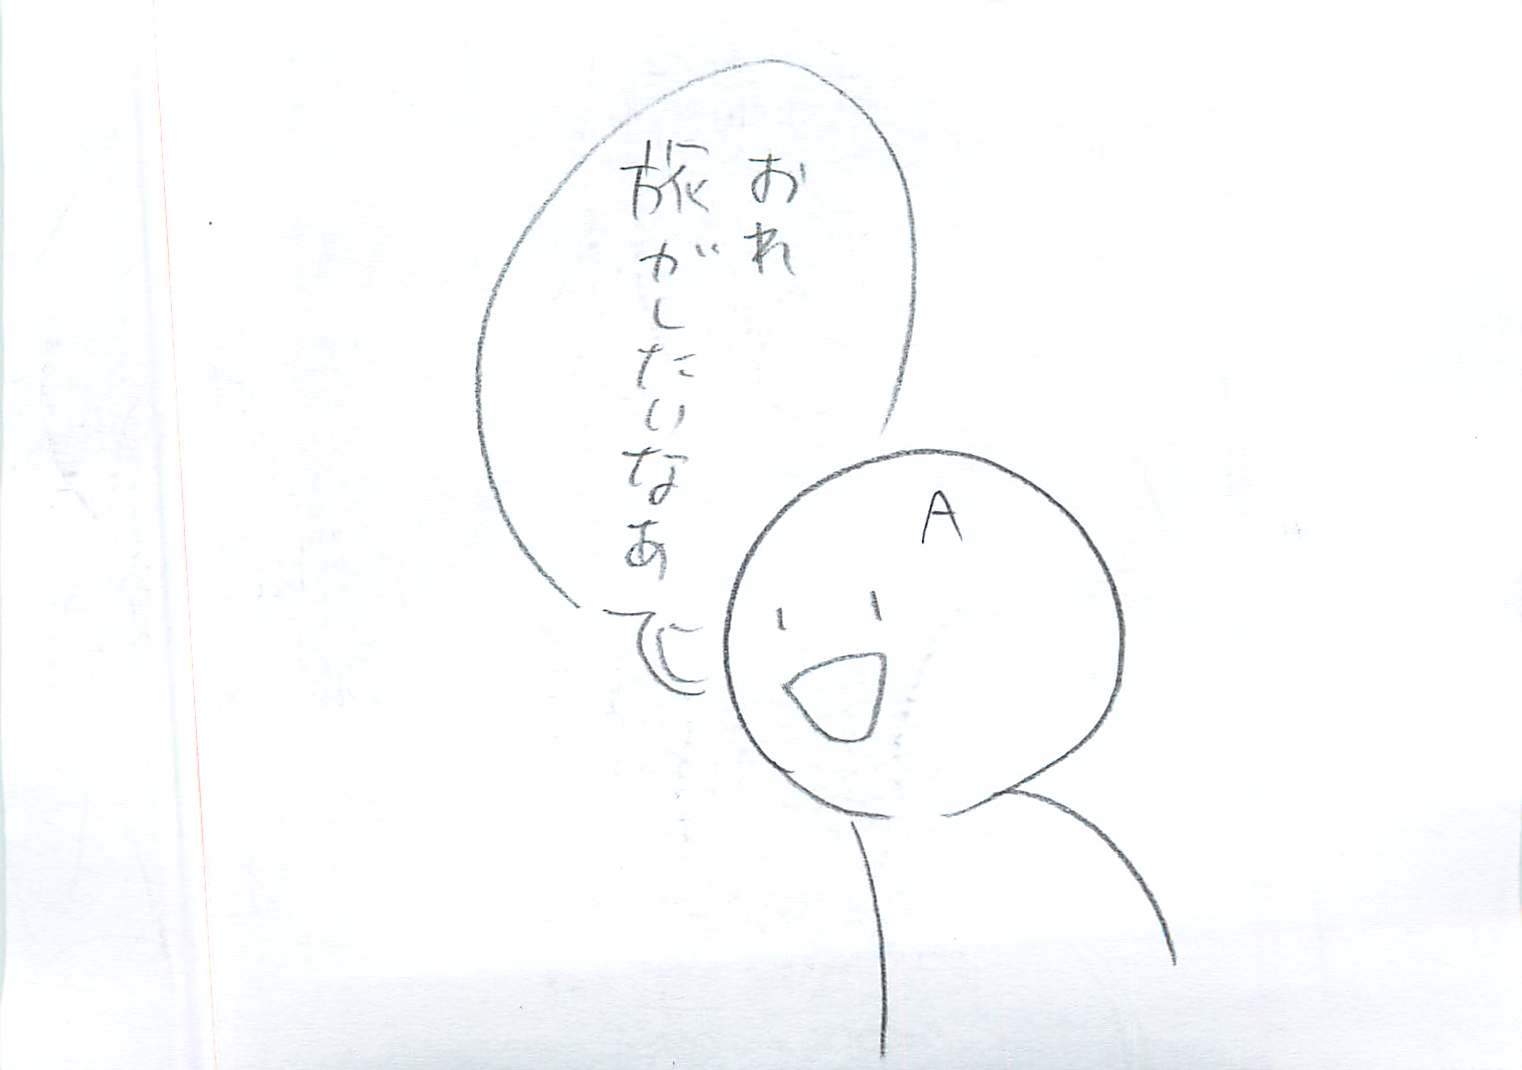 おれ
旅がしたいなあ
A